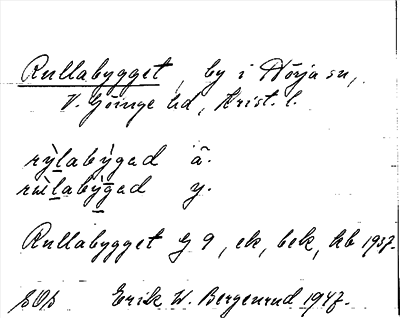 Rullabygget, by i Hörja sn,
V. Göinge hd, Krist. l.
rỳlabỳgad ä.
rùlabỳgad y.
Rullabygget G 9, ek, bek, hb 1937.
Erik W. Bergenrud 1947.